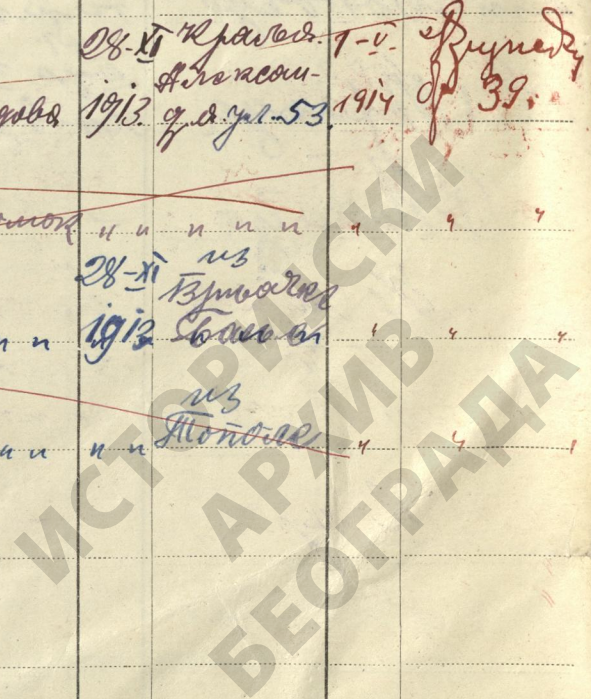 28-XI Краља 1-V-
Алексан-
дова 1913. дра ул. 53 1914 бр 39.
" " " " " " " "
28-XI из
Врњачке
" " 1913 Бање " " "
из
" " " " Тополе " " "
ИСТОРИЈСКИ
АРХИВ
БЕОГРАДА